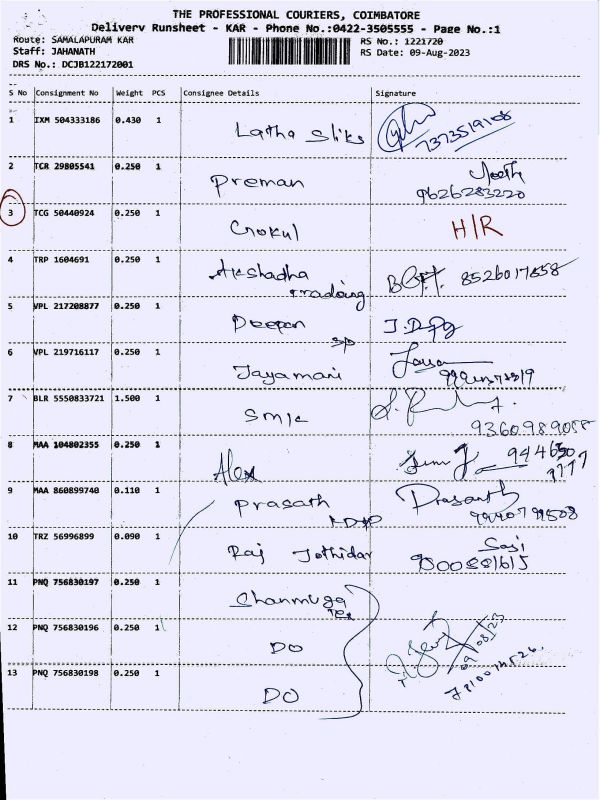 THE PROFESSIONAL COURIERS, COIMBATORE
Delivery Runsheet - KAR - Phone No.:0422-3505555 - Page No.:1
Route: SAMALAPURAM KAR RS No.: 1221720
Staff: JAHANATH RS Date: 09-Aug-2023
DRS No.: DCJB122172001
S No Consignment No Weight PCS Consignee Details Signature
1 IXM 504333186 0.430 1 Latha Sliks 7373519108
2 TCR 29805541 0.250 1 Preman 9626283220
3 TCG 50440924 0.250 1 Gokul H/R
4 TRP 1604691 0.250 1 Akshadha
Trading 8526017658
5 VPL 217208877 0.250 1 Deepan
SP
6 VPL 219716117 0.250 1 Jayamani
7 BLR 5550833721 1.500 1 Smik 9360989088
8 MAA 104802355 0.250 1 Alex
9 MAA 860899740 0.110 1 Prasath Prasanth
10 TRZ 56996899 0.090 1 Raj Jothidar Sasi
11 PNQ 756830197 0.250 1 Shanmuga
Tex
12 PNQ 756830196 0.250 1 DO 09/08/23
13 PNQ 756830198 0.250 1 DO